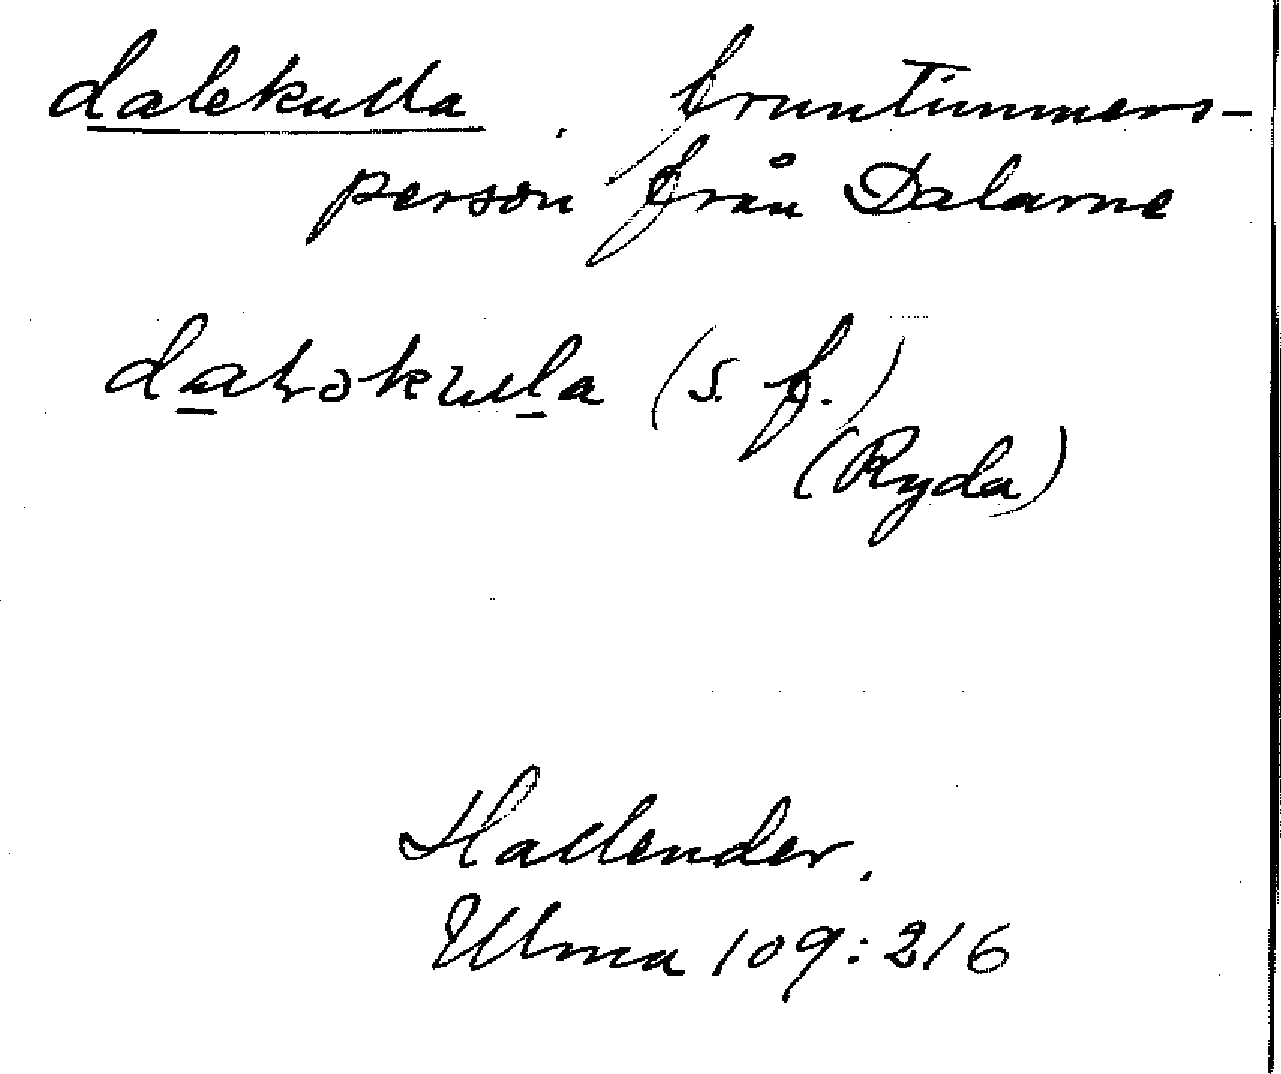 dalekulla. fruntimmers-
person från Dalarne
daɽəkulla (s. f.)
(Ryda)
Hallender.
Ulma 109:216